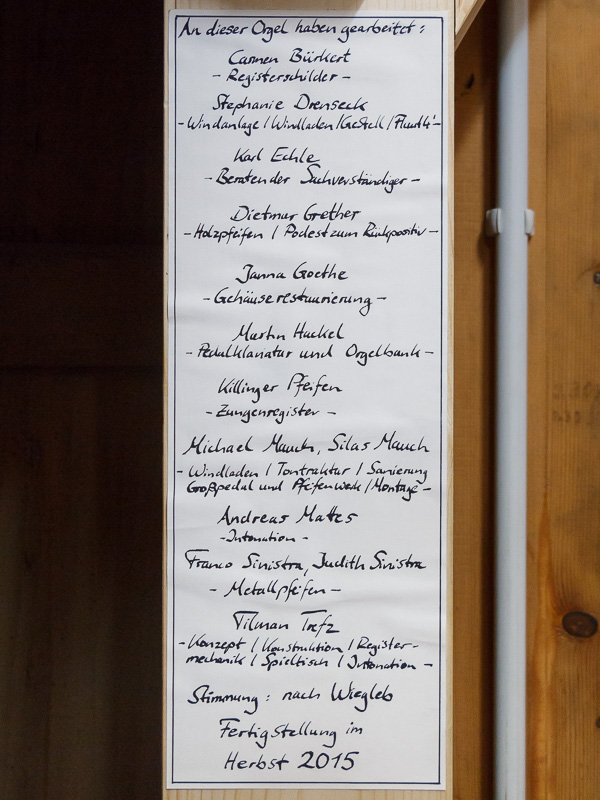 An dieser Orgel haben gearbeitet:
Carmen Bürkert
- Registerschilder -
Stephanie Drenseck
- Windanlage / Windladen / Gestell /
Karl Echle
- Beratender Sachverständiger -
Dietmar Grether
- Holzpfeifen / Podest zum Rückpositiv -
Janna Goethe
- Gehäuserestaurierung -
Martin Hackel
- Pedalklaviatur und Orgelbank -
Killinger Pfeifen
- Zungenregister -
Michael Mauch, Silas Mauch
- Windladen / Tontraktur / Sanierung
Großpedal und Pfeifenwerk / Montage -
Andreas Mattes
- Intonation -
Franco Sinistra, Judith Sinistra
- Metallpfeifen -
Tilman Trefz
- Konzept / Konstruktion / Register-
mechanik / Spieltisch / Intonation -
Stimmung: nach Wiegleb
Fertigstellung im
Herbst 2015